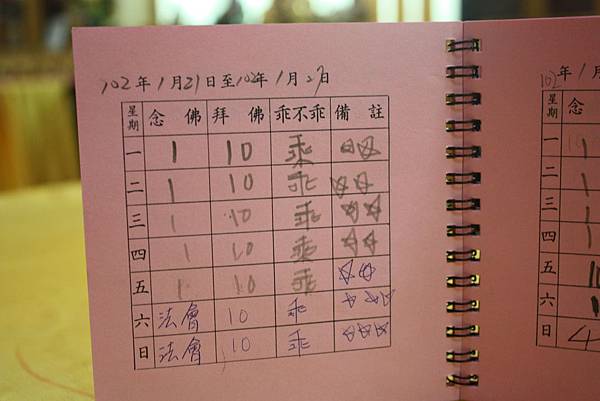 102年1月21日至102年1月27日
星期 念佛 拜佛 乖不乖 備註
一 1 10 乖 ☆☆
二 1 10 乖 ☆☆
三 1 10 乖 ☆☆
四 1 10 乖 ☆☆
五 1 10 乖 ☆☆
六 法會 10 乖 ☆☆☆
日 法會 10 乖 ☆☆☆
102年1月
星期 念
一
二
三 1
四 1
五 10
六
日 4